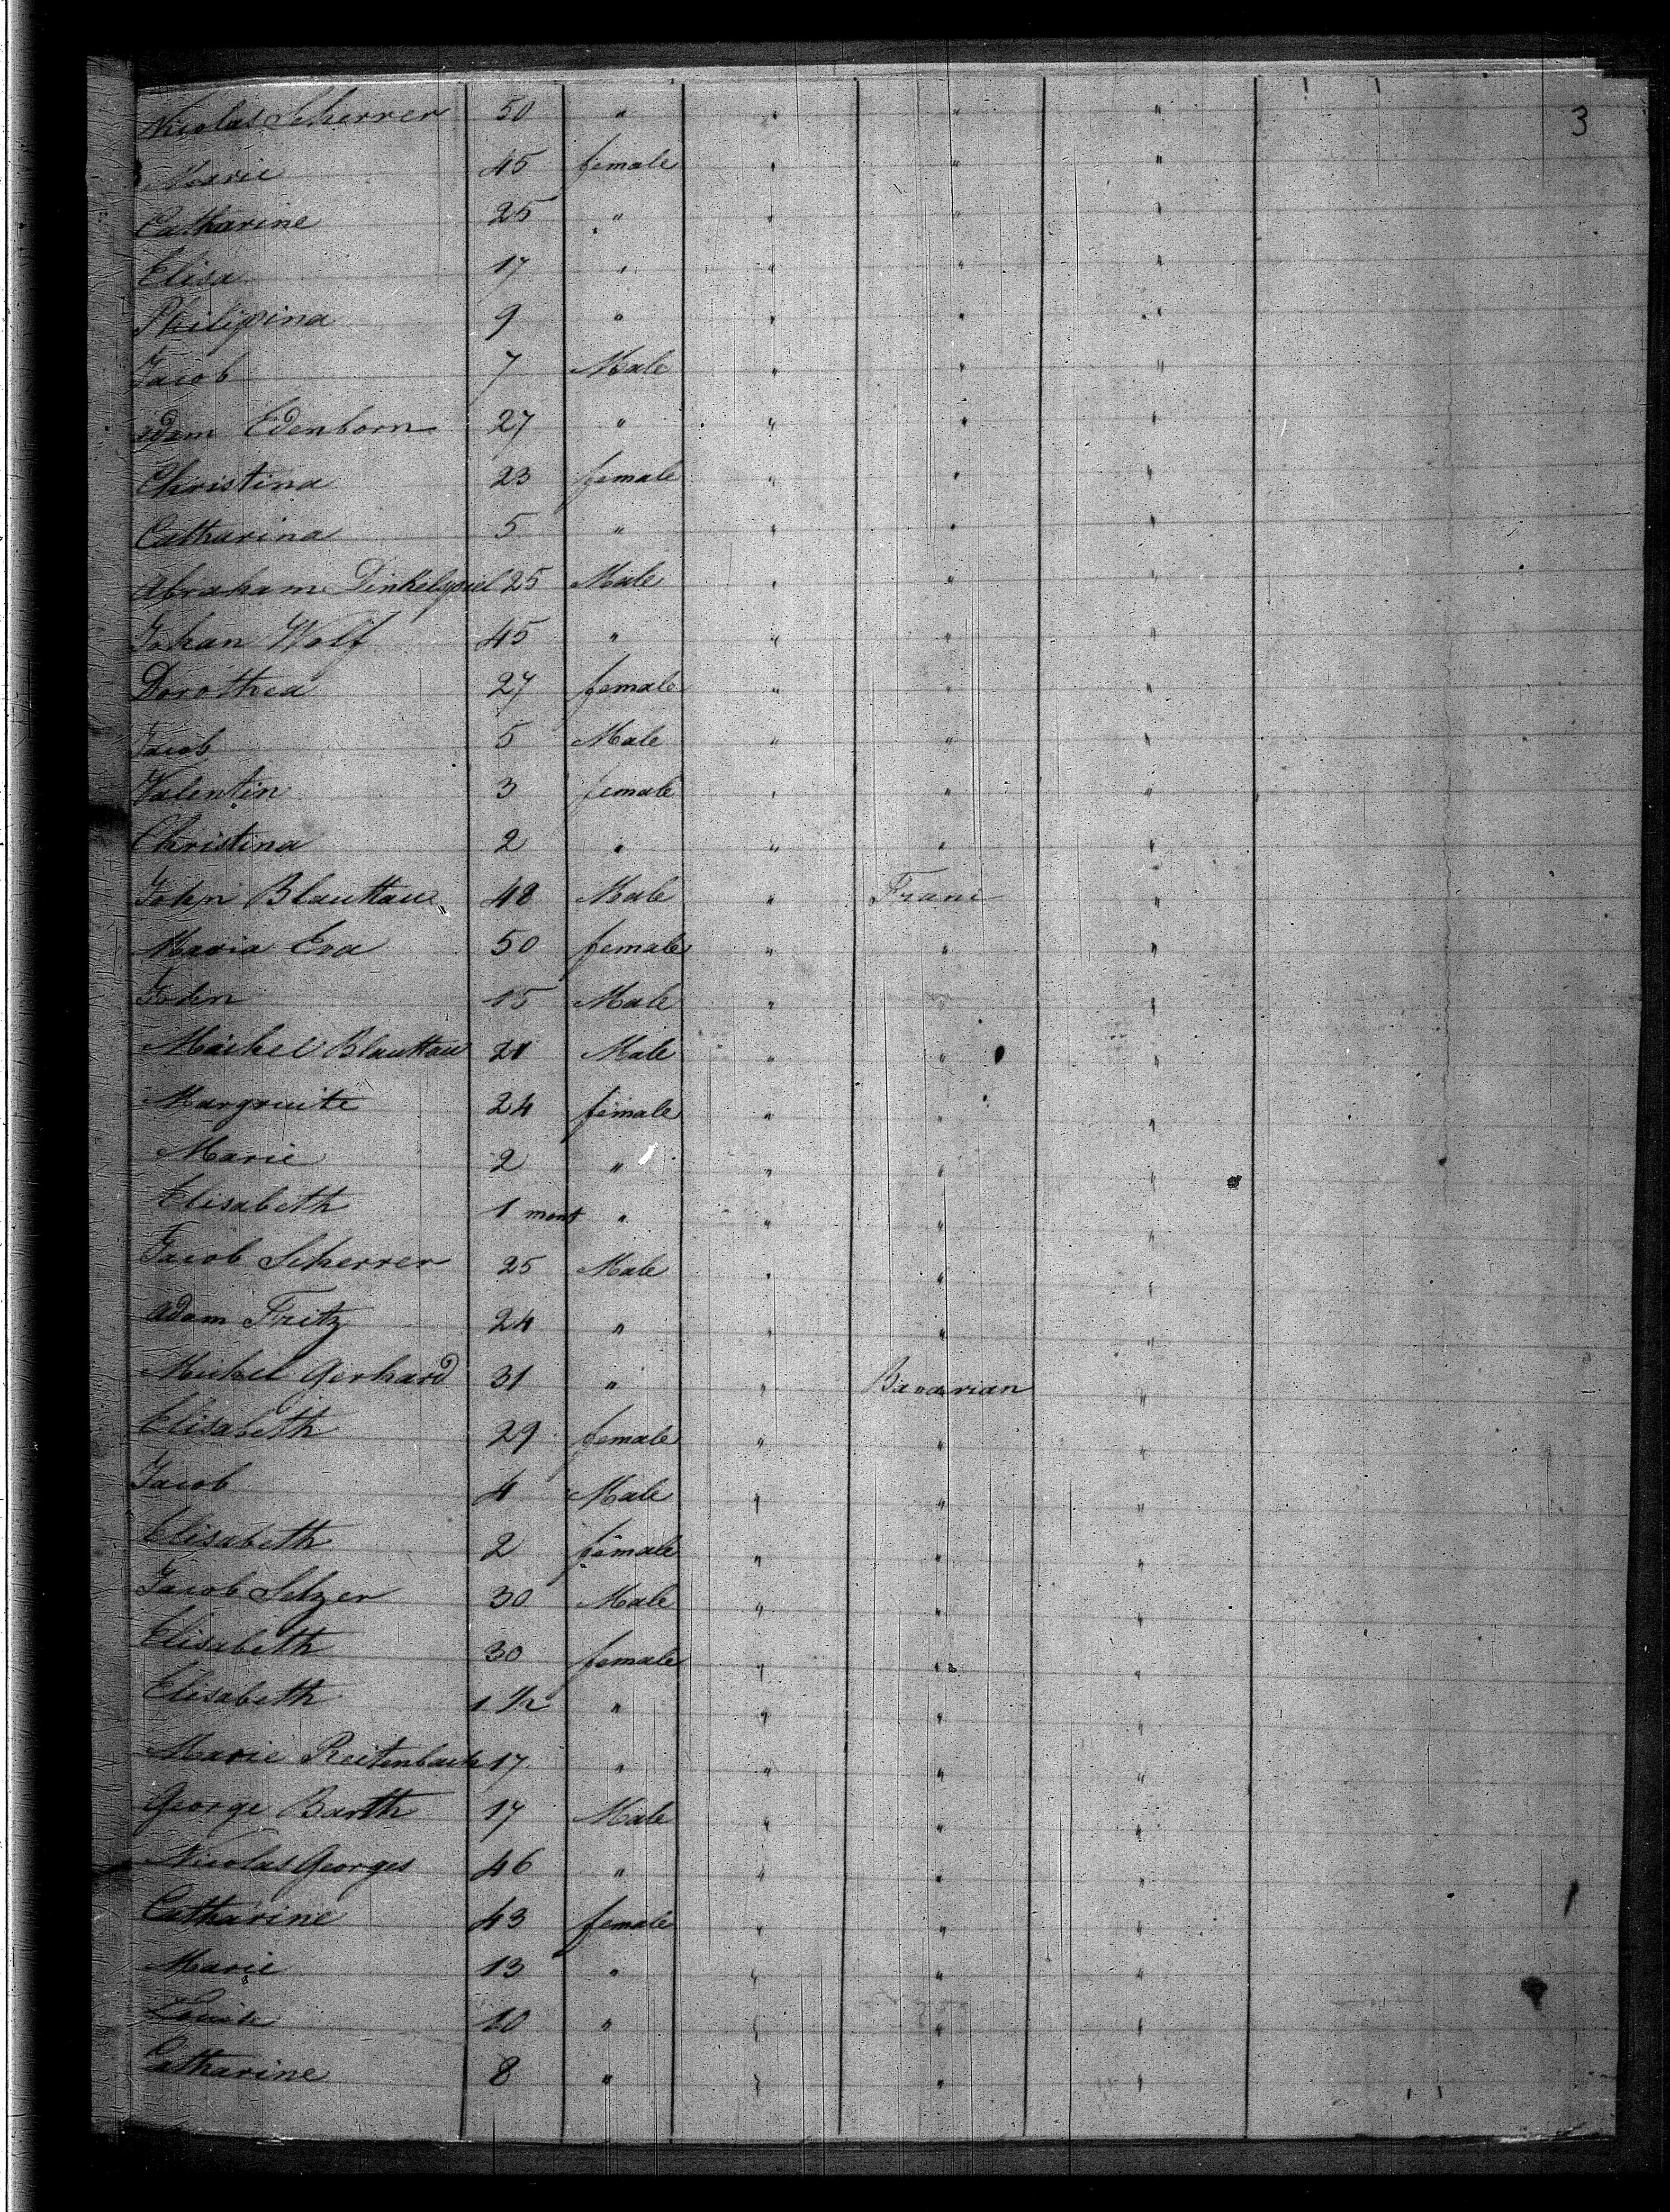 3
Nicolas Scherrer 50 " " " "
Marie 45 female " " "
Catharine 25 " " " "
Elisa 17 " " " "
Philipina 9 " " " "
Jacob 7 Male " " "
Adam Edenborn 27 " " " "
Christina 23 female " " "
Catharina 5 " " " "
Abraham Dinkelspiel 25 Male " " "
Johan Wolf 45 " " " "
Dorothea 27 female " " "
Jacob 5 Male " " "
Valentin 3 female " " "
Christina 2 " " " "
John Blauttau 48 Male " Franc "
Maria Eva 50 female " " "
15 Male " " "
Michel Blauttau 21 Male " " "
Margruite 24 female " " "
Marie 2 " " " "
Elisabeth 1 mont " " " "
Jacob Scherrer 25 Male " " "
Adam Fritz 24 " " " "
Michel Gerhard 31 " " Bavarian "
Elisabeth 29 female " " "
Jacob 4 Male " " "
Elisabeth 2 female " " "
Jacob Selzer 30 Male " " "
Elisabeth 30 female " " "
Elisabeth 1 1/2 " " " "
Marie Reitenbach 17 " " " "
George Barth 17 Male " " "
Nicolas Georges 46 " " " "
Catharine 43 female " " "
Marie 13 " " " "
Louise 10 " " " "
Catharine 8 " " " "